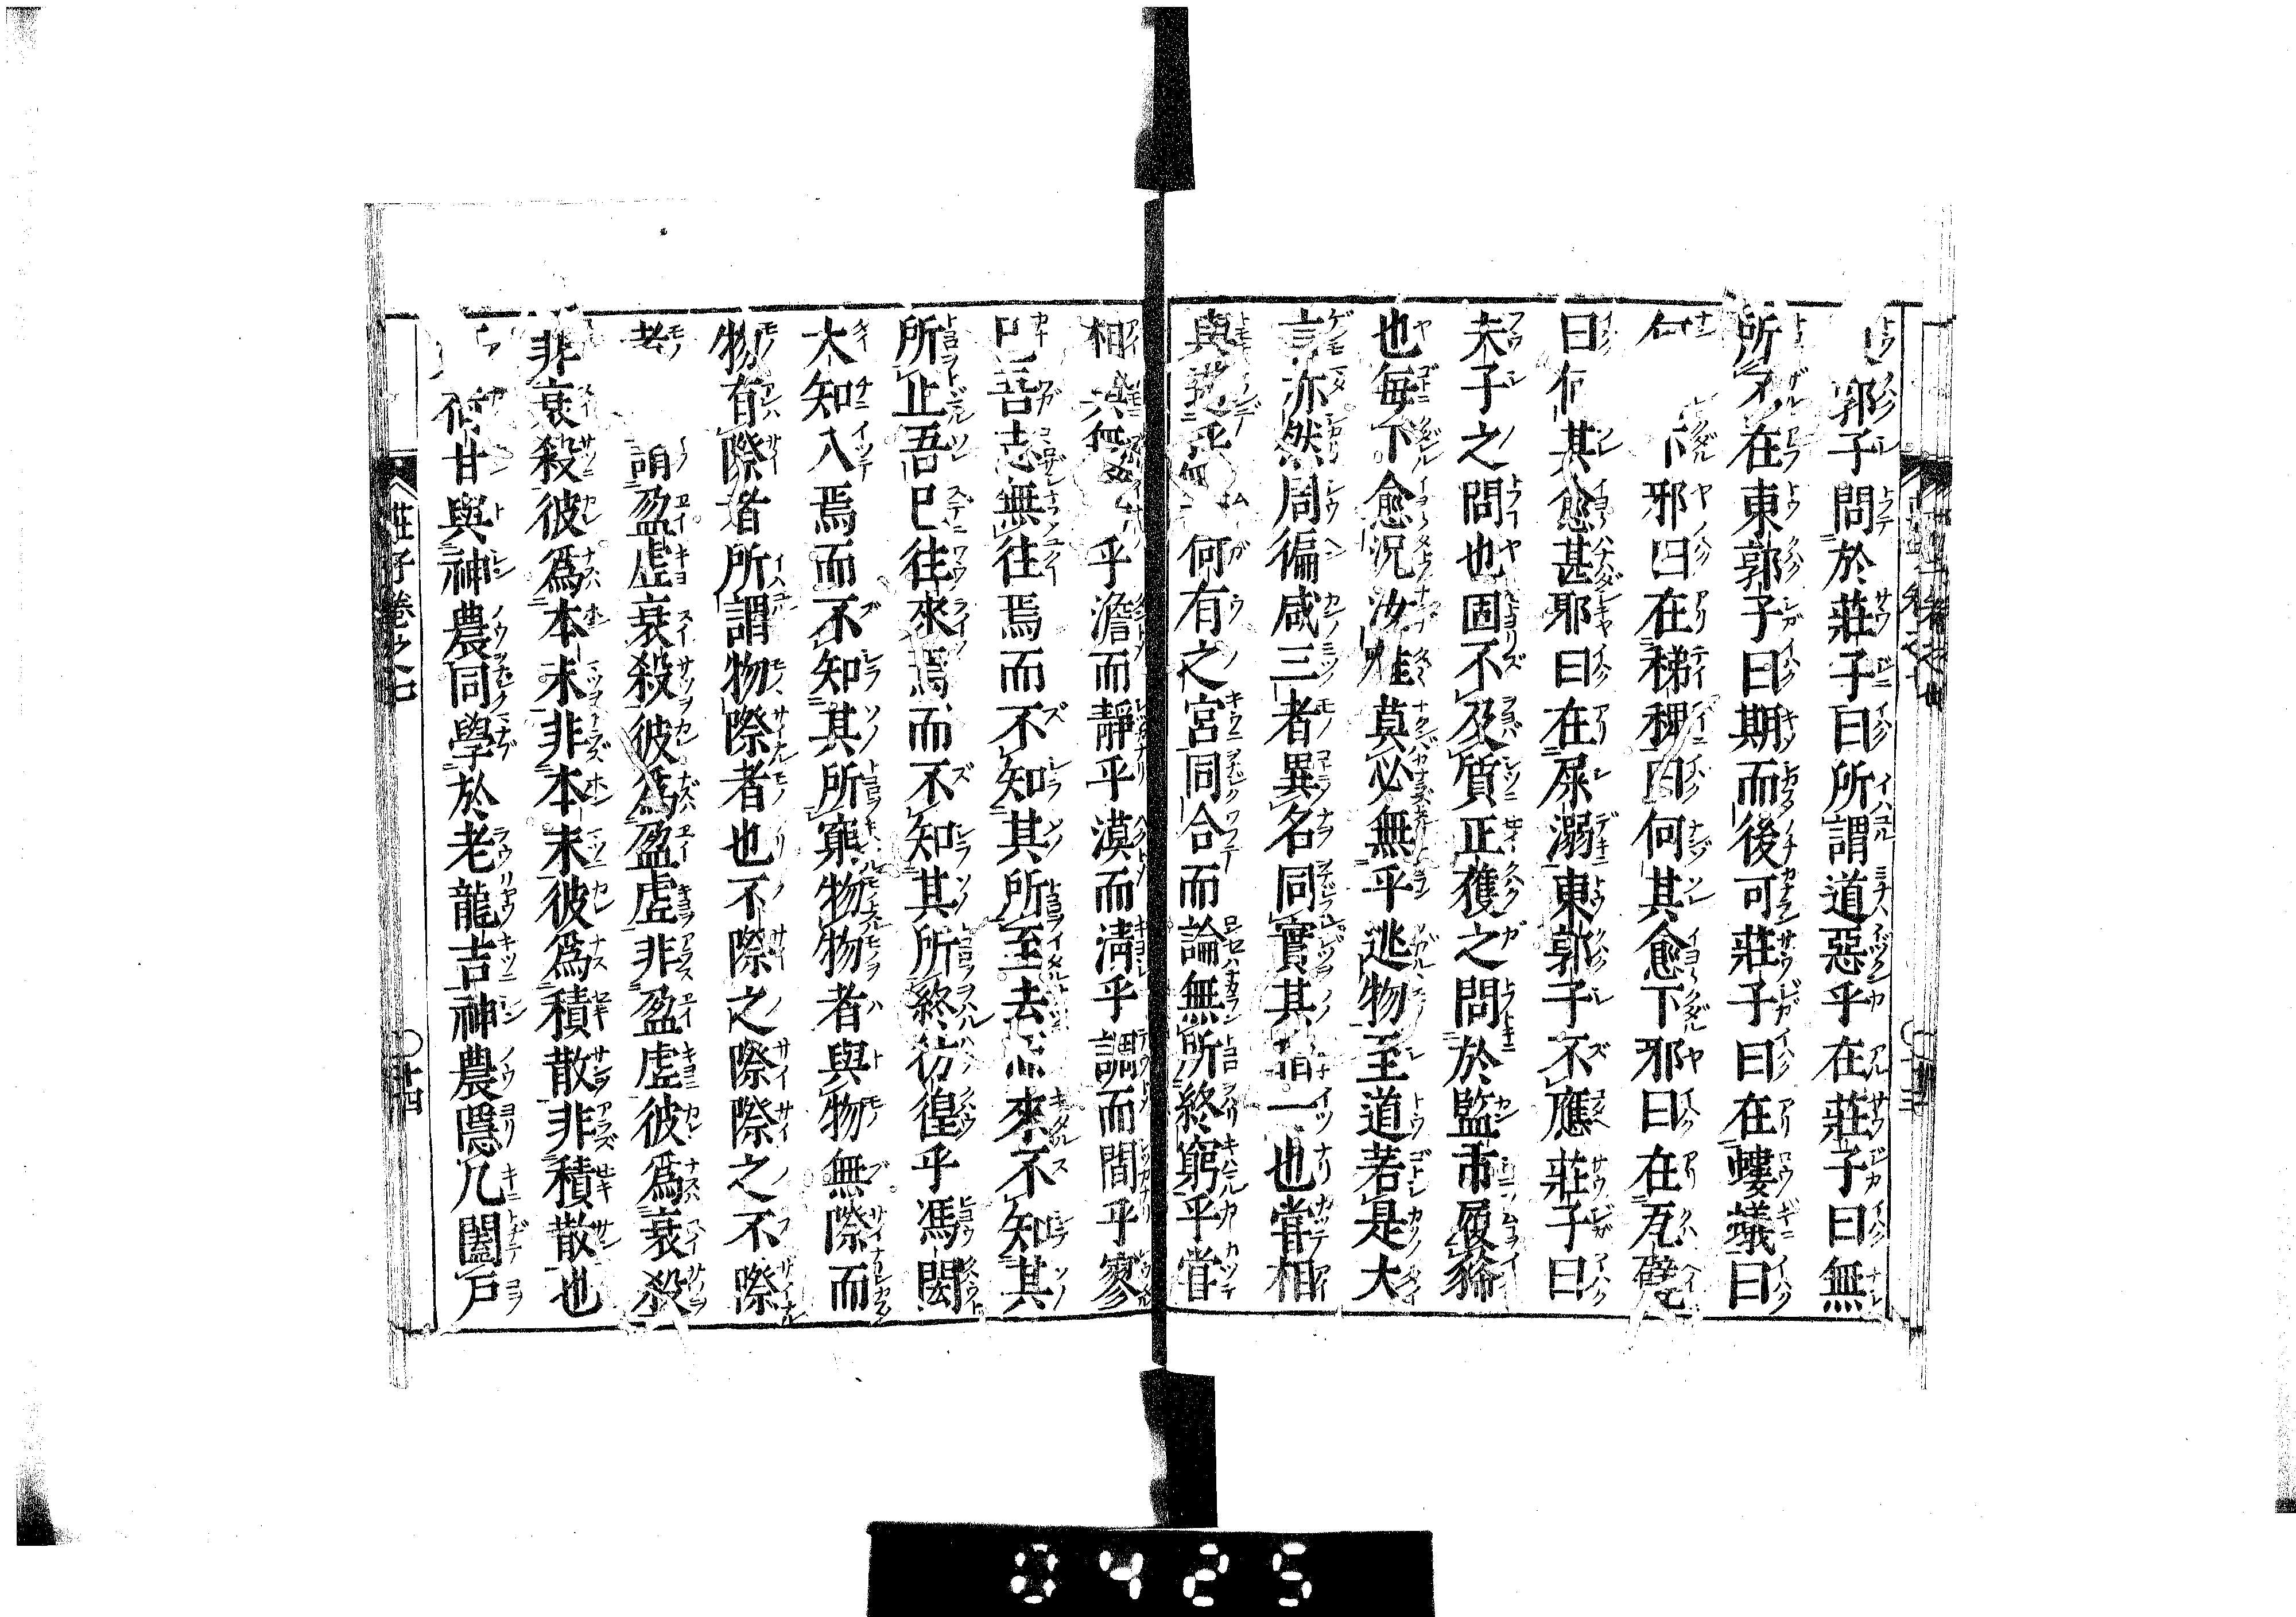 郭子問於莊子曰所謂道惡乎在莊子曰無
所不在東郭子曰期而後可莊子曰在螻蟻曰
何 下邪曰在稊稗曰何其愈下邪曰在瓦甓
曰何其愈甚耶曰在屎溺東郭子不應莊子曰
夫子之問也固不及質正獲之問於監市履狶
也每下愈況汝唯莫必無乎逃物至道若是大
言亦然周徧咸三者異名同實其指一也嘗相
與游乎無 何有之宮同合而論無所終窮乎嘗
相與無 乎澹而靜乎漠而淸乎調而間乎寥
已吾志無往焉而不知其所至去 來不知其
所止吾已往來焉而不知其所終彷徨乎馮閎
大知入焉而不知其所窮物物者與物無際而
物有際者所謂物際者也不際之際際之不際
者 謂盈虛衰殺彼爲盈虛非盈虛彼爲衰殺
非衰殺彼爲本末非本末彼爲積散非積散也
甘與神農同學於老龍吉神農隱几闔戶
莊子卷之
十四
0425